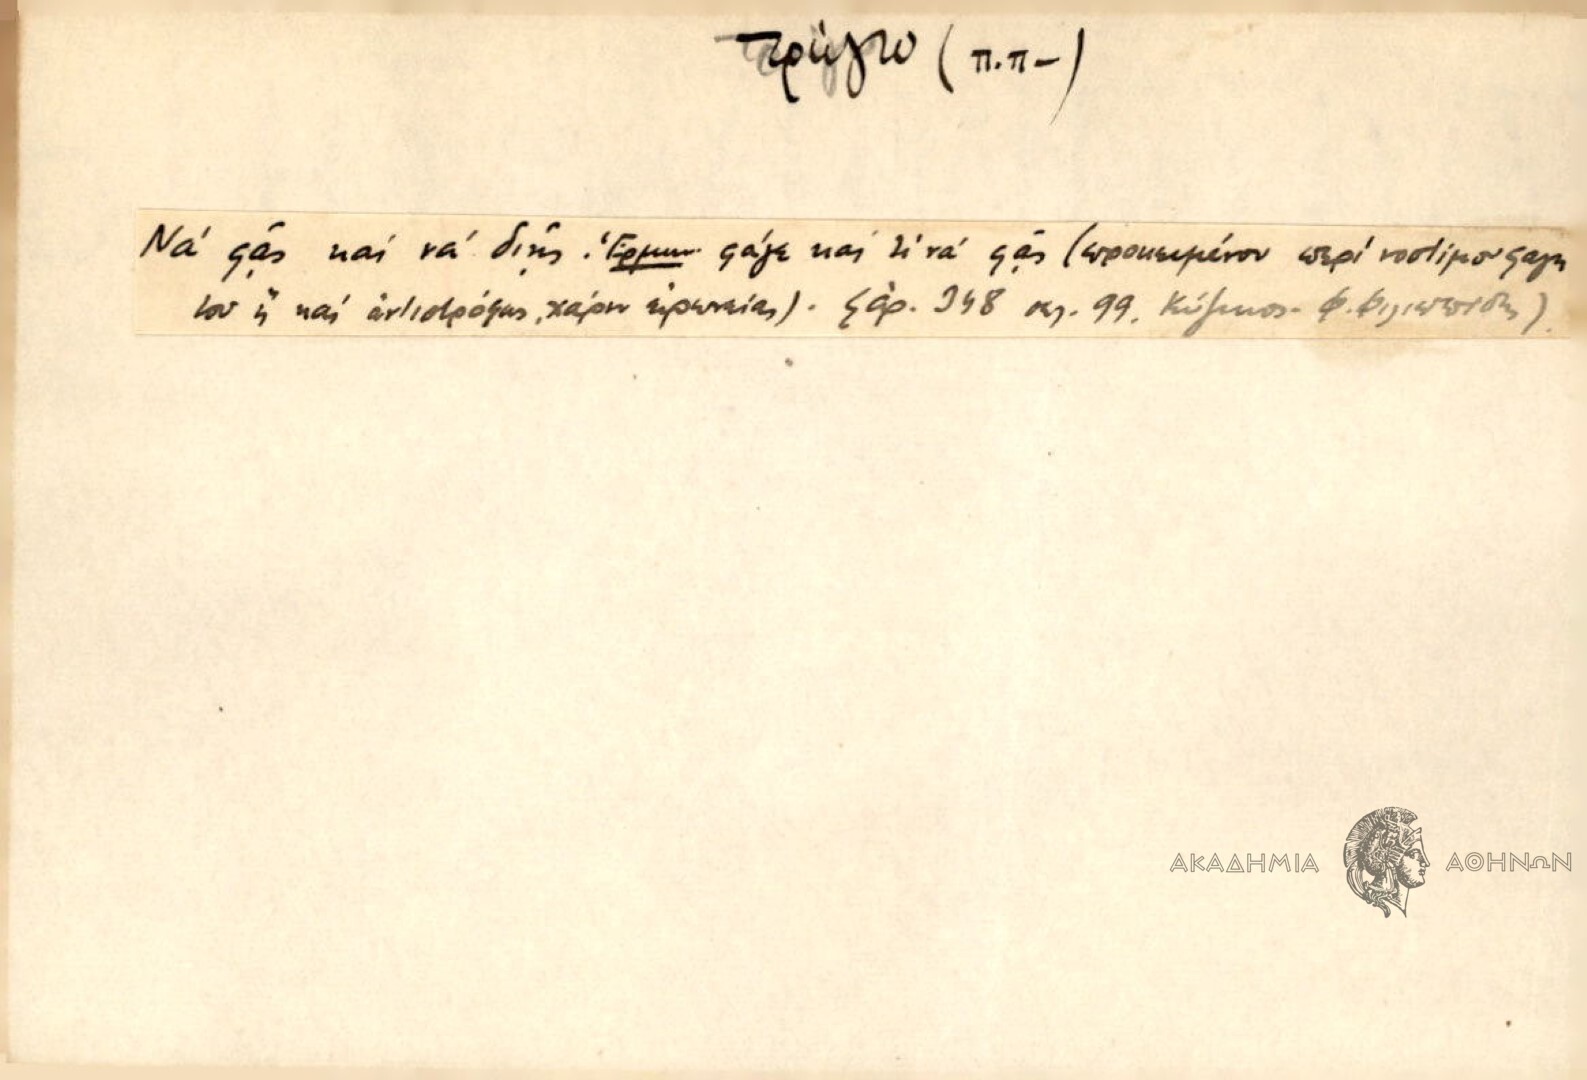 τρώγω (π.π-)
Νά φᾷς καί νά διῇς. Ἑρμην. φάγε καί τί νά φᾷς (προκειμένου περί νοστίμου φαγη
του ἤ καί ἀντιστρόφως, χάριν εἰρωνείας). ἀρ. 348 σελ. 99. Κύζικος - Φ. Φιλιππίδης)
ΑΚΑΔΗΜΙΑ ΑΘΗΝΩΝ